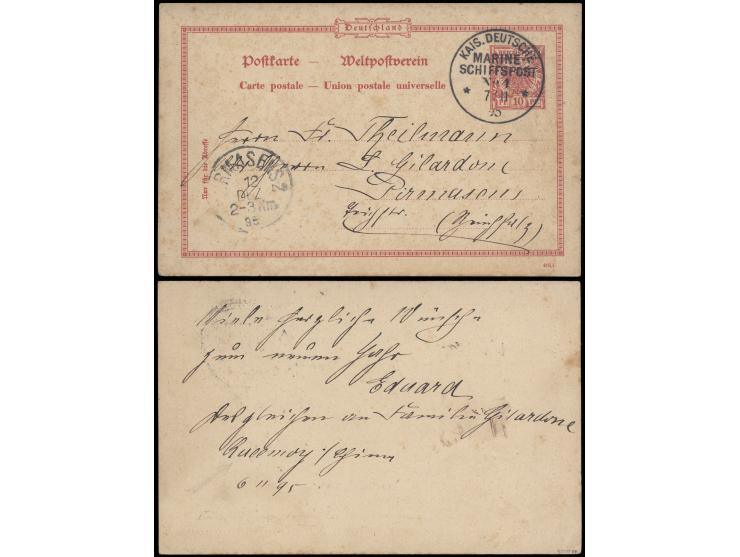 Deutschland
Postkarte — Weltpostverein
Carte postale — Union postale universelle
KAIS. DEUTSCHE
MARINE-
SCHIFFSPOST
No 1
7 11
95
10
Nur für die Adresse
Herrn Fr. Theilmann
Herrn L. Gilardone
Pirmasens
(Rheinpfalz)
PIRMASENS 2
12
DEZ
2-3 Nm
95
Viele herzliche Wünsche
zum neuen Jahr
Eduard
desgleichen an Familie Gilardone
Quemoy / China
6 11 95